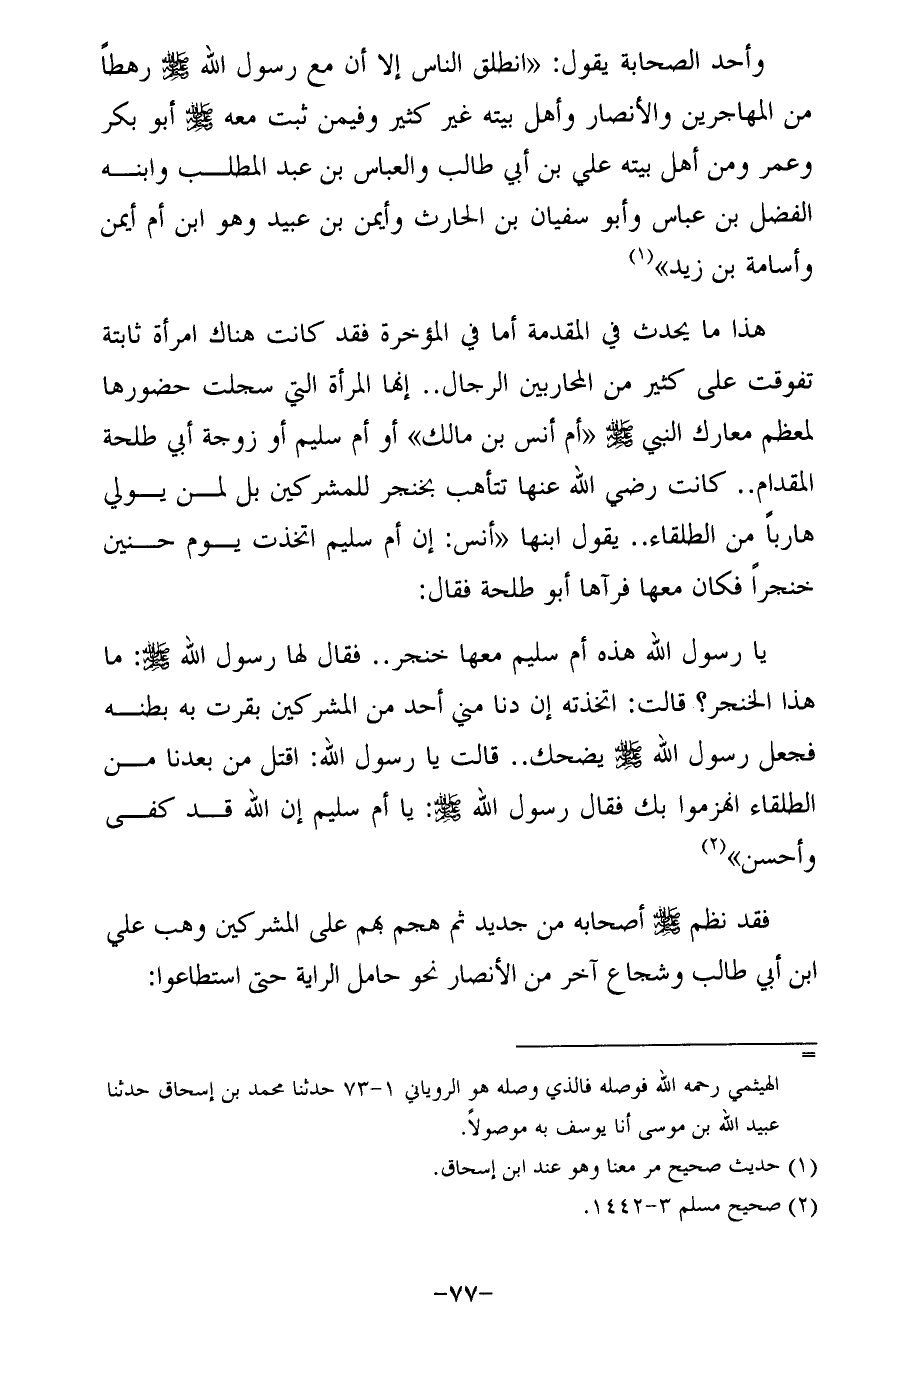 وأحد الصحابة يقول: «انطلق الناس إلا أن مع رسول الله ﷺ رهطاً
من المهاجرين والأنصار وأهل بيته غير كثير وفيمن ثبت معه ﷺ أبو بكر
وعمر ومن أهل بيته علي بن أبي طالب والعباس بن عبد المطلب وابنه
الفضل بن عباس وأبو سفيان بن الحارث وأيمن بن عبيد وهو ابن أم أيمن
وأسامة بن زيد»(١)
هذا ما يحدث في المقدمة أما في المؤخرة فقد كانت هناك امرأة ثابتة
تفوقت على كثير من المحاربين الرجال.. إنها المرأة التي سجلت حضورها
لمعظم معارك النبي ﷺ «أم أنس بن مالك» أو أم سليم أو زوجة أبي طلحة
المقدام.. كانت رضي الله عنها تتأهب بخنجر للمشركين بل لمن يولي
هارباً من الطلقاء.. يقول ابنها «أنس: إن أم سليم اتخذت يوم حنين
خنجراً فكان معها فرآها أبو طلحة فقال:
يا رسول الله هذه أم سليم معها خنجر.. فقال لها رسول الله ﷺ: ما
هذا الخنجر؟ قالت: اتخذته إن دنا مني أحد من المشركين بقرت به بطنه
فجعل رسول الله ﷺ يضحك.. قالت يا رسول الله: اقتل من بعدنا من
الطلقاء انهزموا بك فقال رسول الله ﷺ: يا أم سليم إن الله قد كفى
وأحسن»(٢)
فقد نظم ﷺ أصحابه من جديد ثم هجم بهم على المشركين وهب علي
ابن أبي طالب وشجاع آخر من الأنصار نحو حامل الراية حتى استطاعوا:
=
الهيثمي رحمه الله فوصله فالذي وصله هو الروياني ١-٧٣ حدثنا محمد بن إسحاق حدثنا
عبيد الله بن موسى أنا يوسف به موصولاً.
(١) حديث صحيح مر معنا وهو عند ابن إسحاق.
(٢) صحيح مسلم ٣-١٤٤٢.
-٧٧-